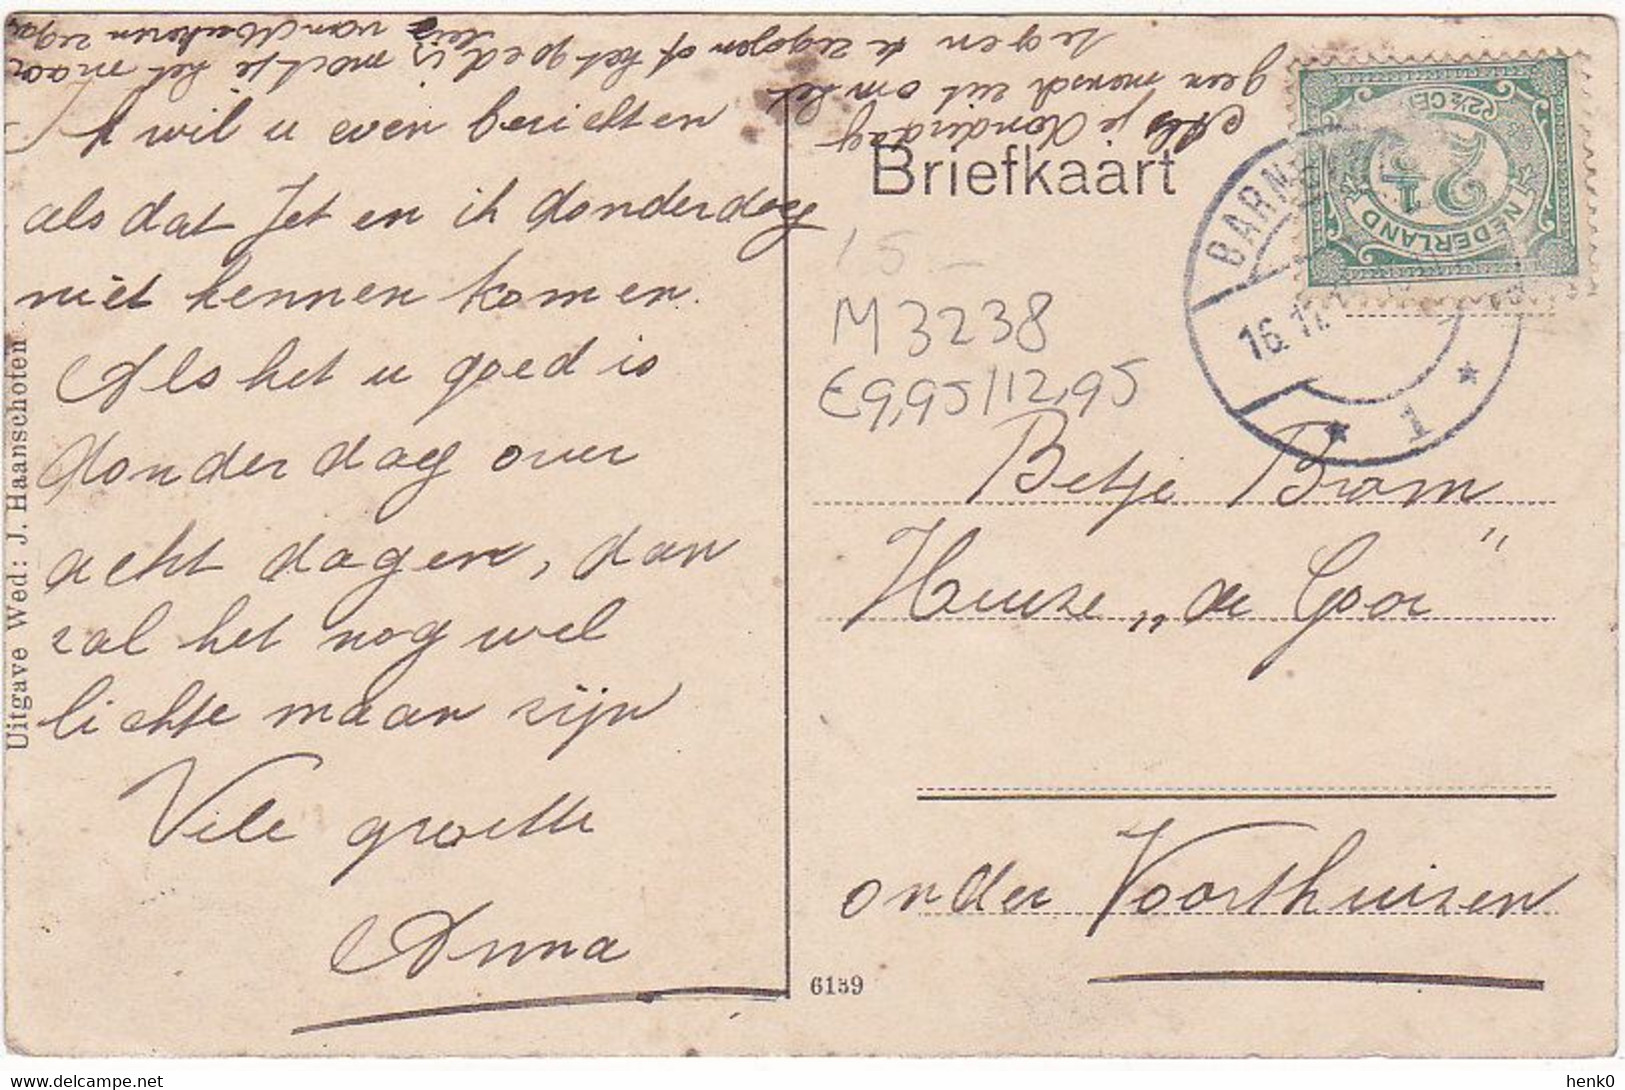 Ik wil u even berichten
als dat Jet en ik donderdag
niet kennen komen.
Als het u goed is
donderdag over
acht dagen, dan
zal het nog wel
lichte maan zijn
Vele groette
Anna
Als je donderdag
geen mensch uit om het
tegen te zeggen of het goed is
moet je het maar
Uitgave Wed: J. Haanschoten
Briefkaart
NEDERLAND
2½
(2½ CE
BARN
16.12
1
15 -
M 3238
€9,95/12,95
Betje Brom
Huize „de Gooi"
onder Voorthuizen
6159
henk0